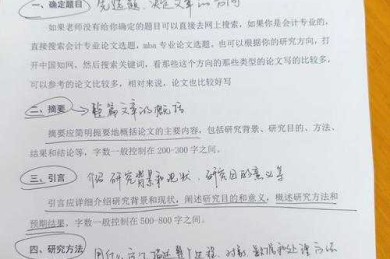 一、确定题目 先选题
如果老师没有给你确定的题目可以直接去网上搜索，如果你是会计专业的，
直接搜索会计专业论文选题，mba 专业论文选题，也可以根据你的研究方向，打
开中国知网，然后搜索关键词，看那些这个方向的那些类型的论文写的比较多，
可以参考的论文比较多，相对来说，论文也比较好写
二、摘要 整篇文章的概括
摘要应简明扼要地概括论文的主要内容，包括研究背景、研究目的、方法、
结果和结论等，字数一般控制在 200-300 字之间。
三、引言 介绍 研究背景和现状、研究目的意义等
引言应详细介绍研究背景和现状，阐述研究目的和意义，概述研究方法和
预期结果，字数一般控制在 500-800 字之间。
四、研究方法 用什么